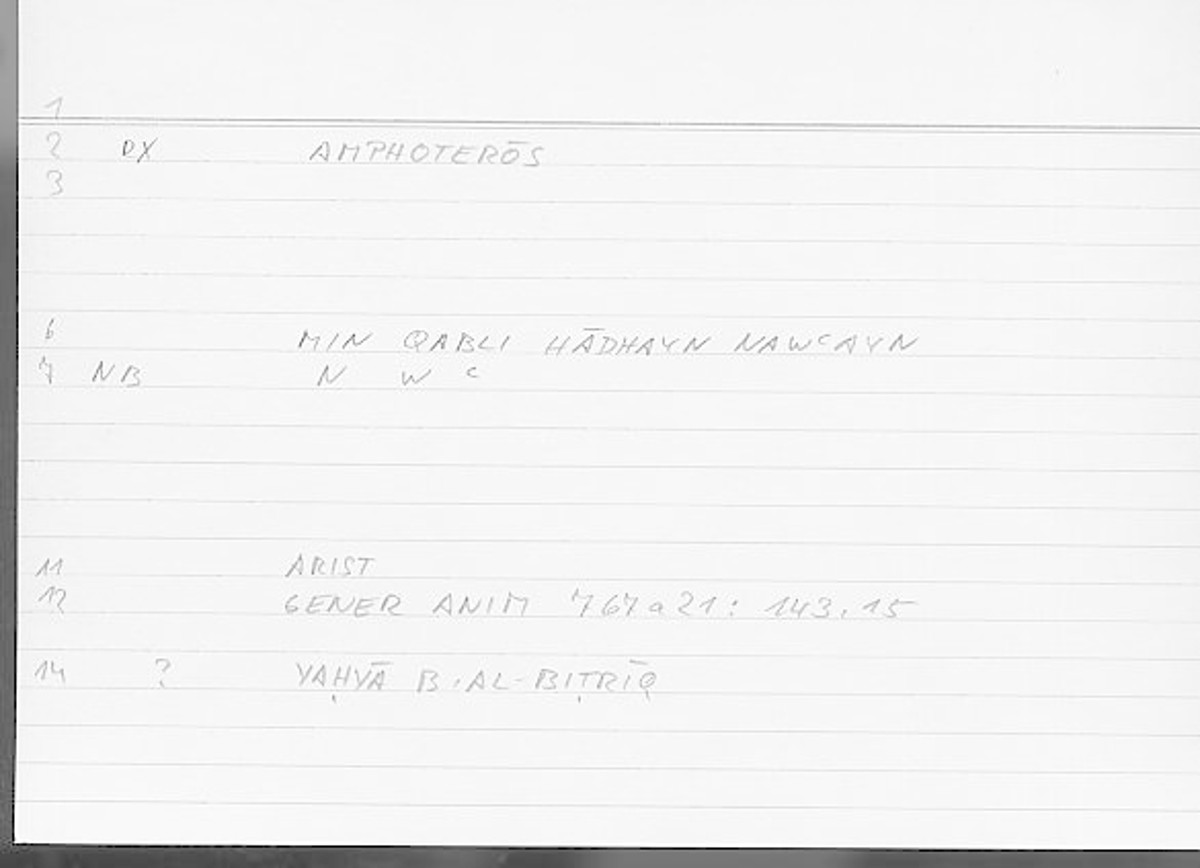 1
2 DX AMPHOTERŌS
3
6 MIN QABLI HĀDHAYN NAWᶜAYN
7 NB N W ᶜ
11 ARIST
12 GENER ANIM 767a21: 143.15
14 ? YAḤYĀ B. AL-BIṬRĪQ